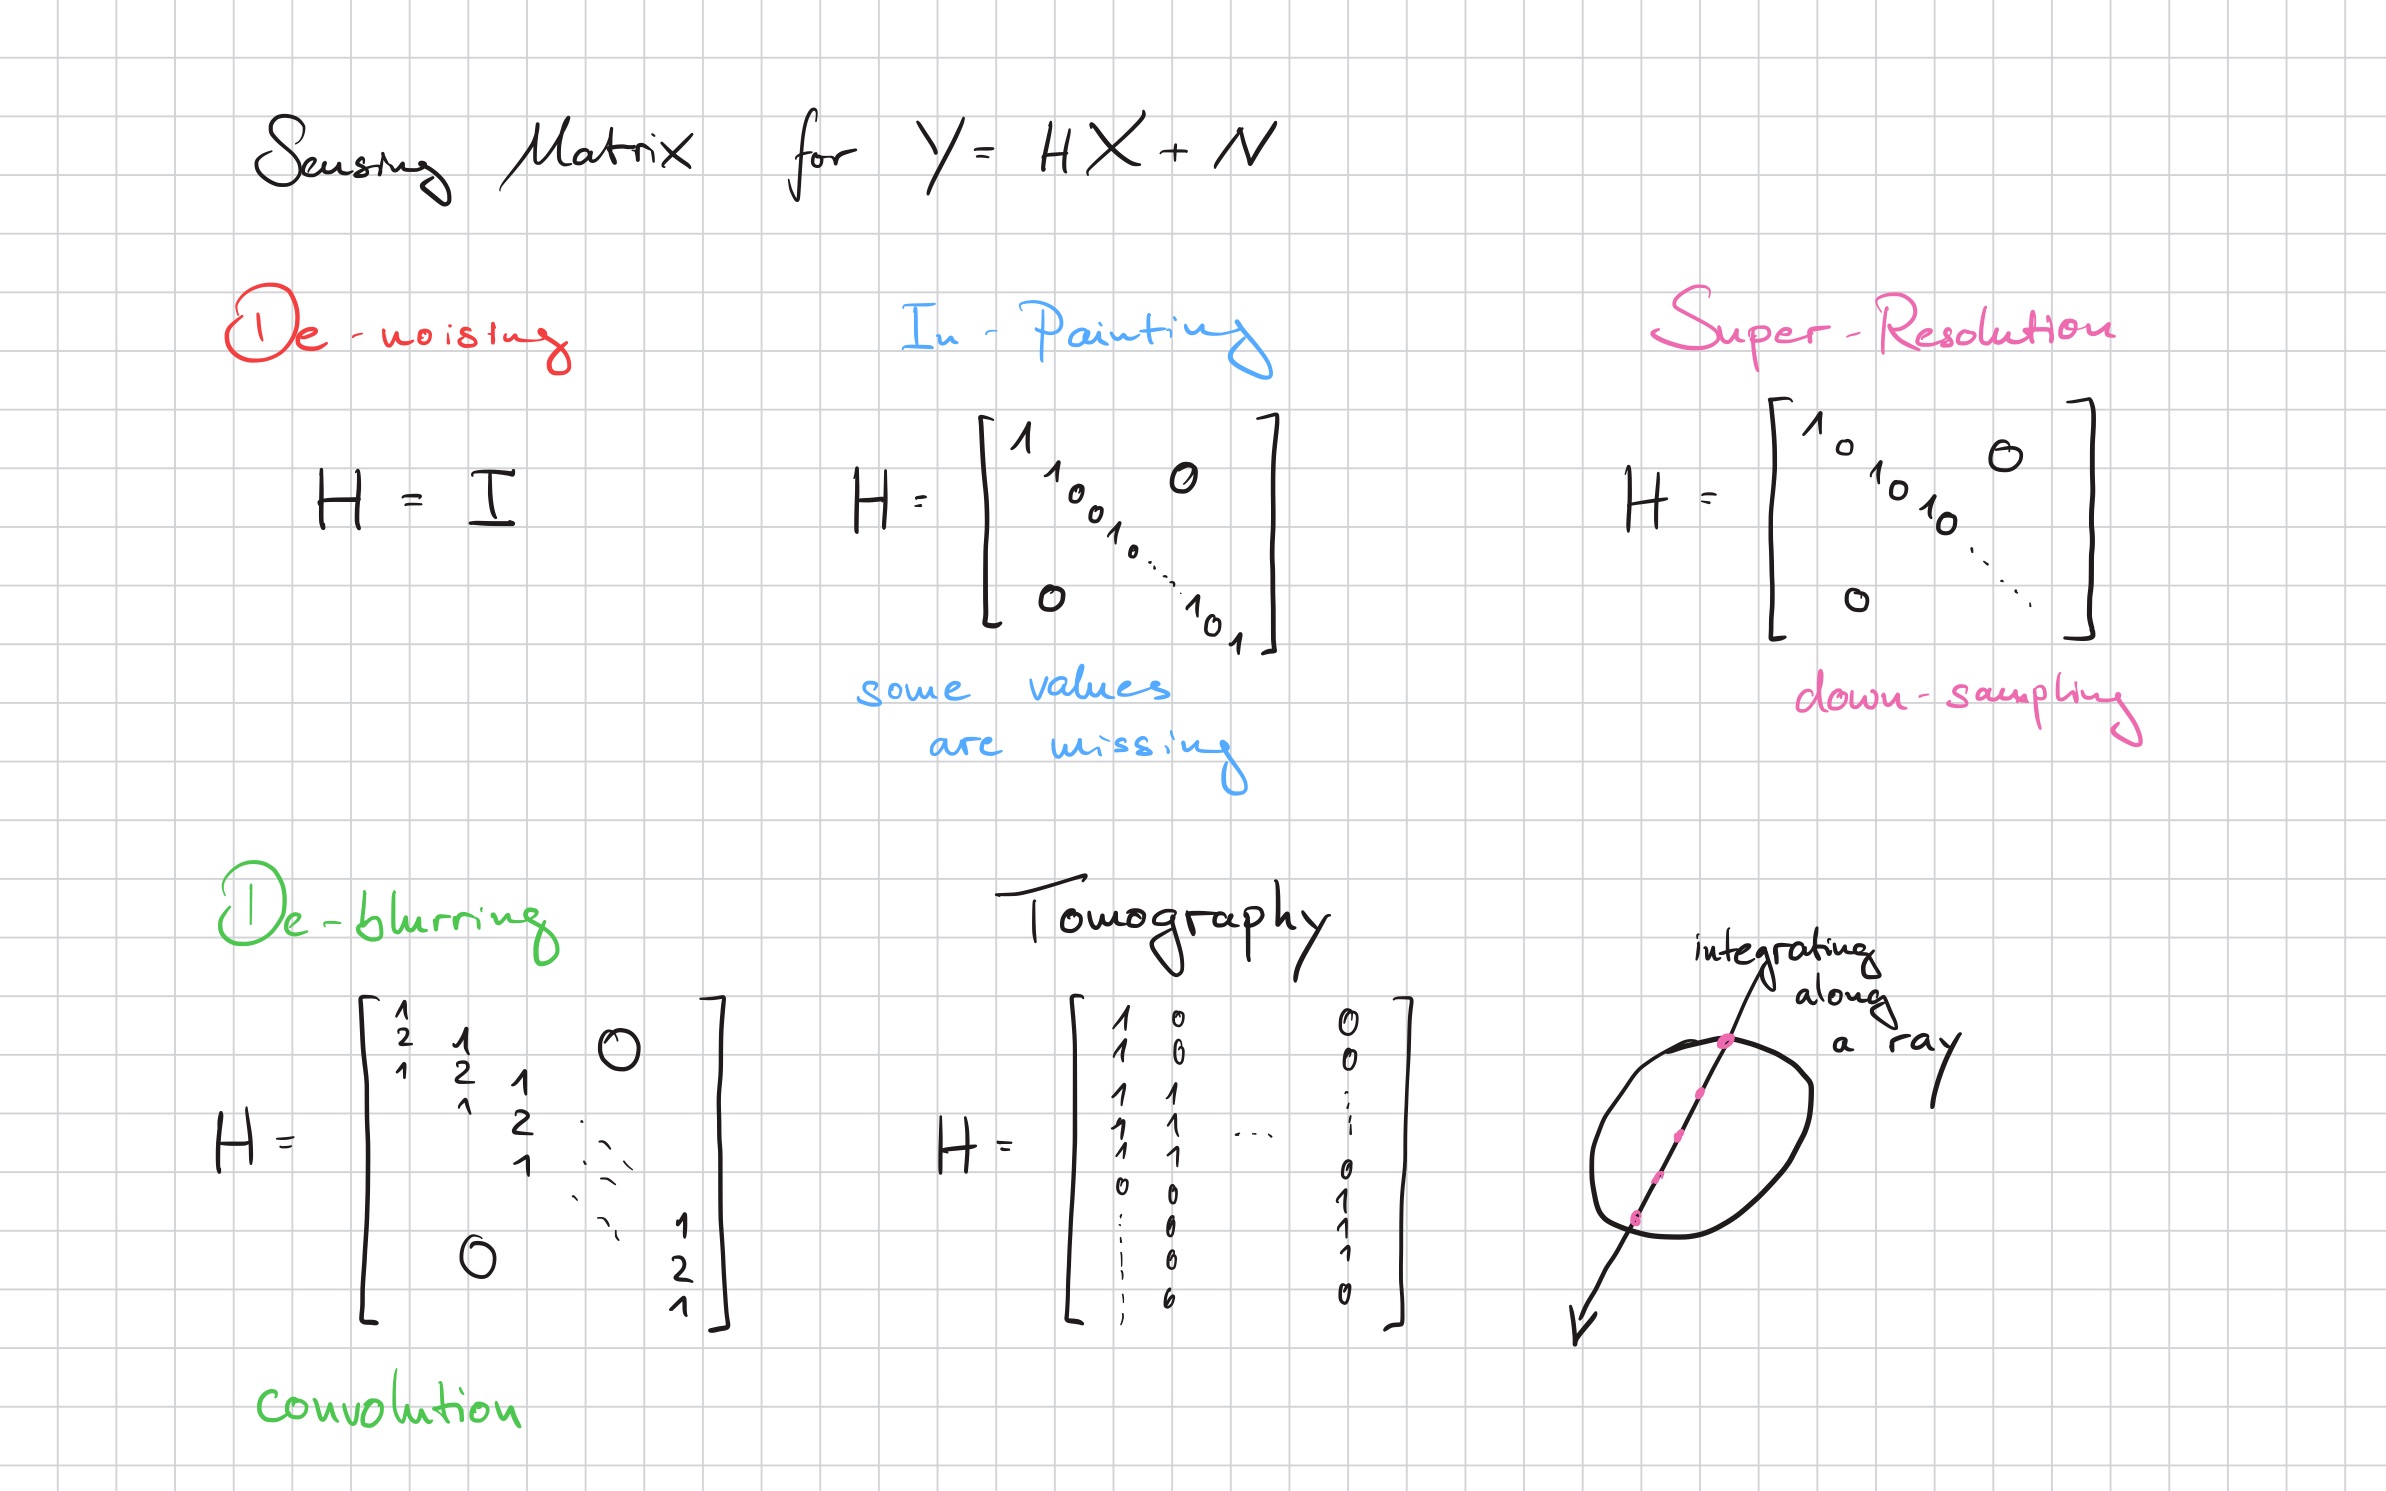 Sensing Matrix for Y = HX + N
De-noising
H = I
In-Painting
H = [
1
1
0
0
0
1
0
0
1
0
1
]
some values
are missing
Super-Resolution
H = [
1
0
0
1
0
1
0
0
]
down-sampling
De-blurring
H = [
1
2 1 0
1 2 1
1 2
1
1
0 2
1
]
convolution
Tomography
H = [
1 0 0
1 0 0
1 1
1 1 ....
1 1 0
0 0 1
0 1
0 1
0 0
]
integrating
along
a ray